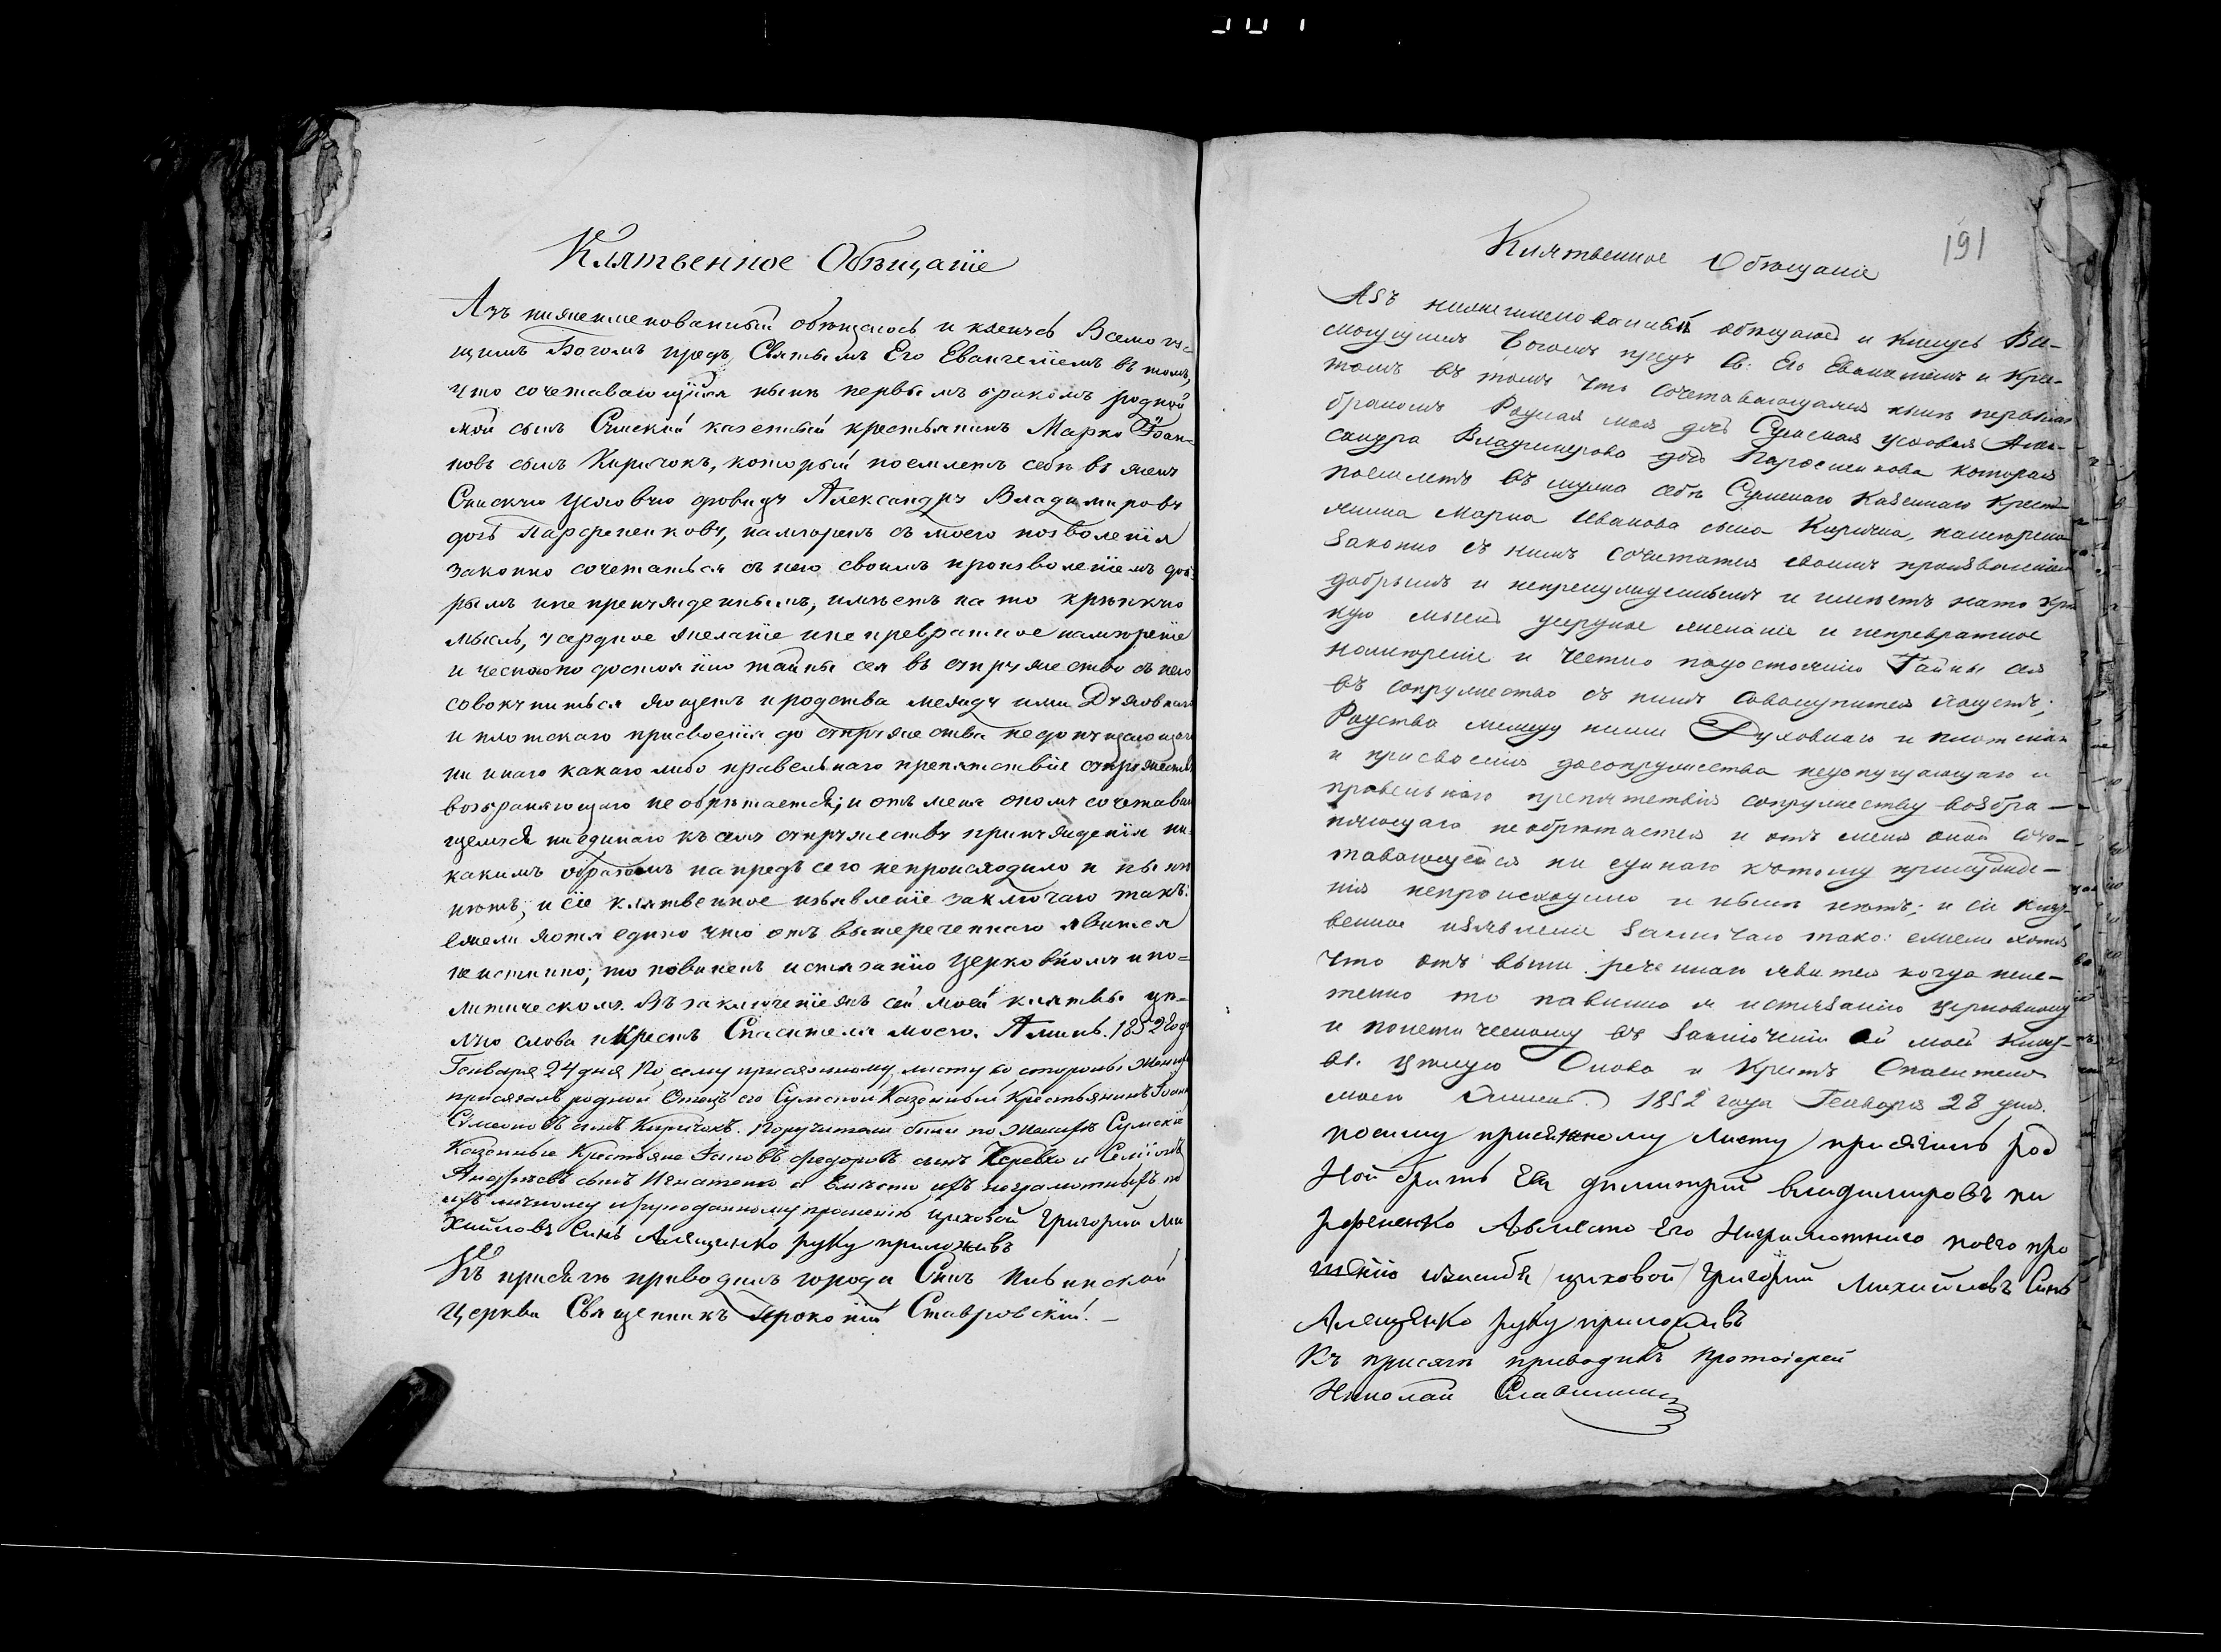 Клятвенное Обѣщаніе
Азъ нижеименованный обѣщаюсь и клянусь Всемогу=
щимъ Богомъ предъ Святымъ Его Евангеліемъ въ томъ,
что сочетавающійся нынѣ первымъ бракомъ родной
мой сынъ Сумскій казенный крестьянинъ Марко Іоан=
новъ сынъ Киричокъ, который поемлетъ себѣ въ жену
Сумскую цеховую Александру Владимирову
дочь Парфененкову, намѣренъ съ моего позволенія
законно сочетаться съ нею своимъ произволеніемъ доб=
рымъ и непринужденнымъ, имѣетъ на то крѣпкую
мысль, усердное желаніе и непревратное намѣреніе
и честно по достоянію тайны сея въ супружество съ нею
совокупиться хощетъ и родства между ими Духовнаго
и плотскаго присвоенія до супружества недопущающаго
ни инаго какаго либо правельнаго препятствіе супружеству
возбраняющаго не обрѣтается; и отъ меня оному сочетаваю
щемуся ни единаго къ сему супружеству принужденія ни
какимъ образомъ напредъ сего непроисходило и нынѣ
нѣтъ, и сіе клятвенное изъявленіе заключаю такъ:
ежели хотя едино что отъ вышереченнаго явится
не истинно; то повиненъ истязанію Церковному и по=
литическому. Въ заключеніе жъ сей моей клятвы цѣ=
лую слова и Крестъ Спасителя моего. Аминь. 1852 года
Генваря 24 дня По сему присяжному листу со стороны Жениха
присягалъ родной Отецъ его Сумской Казенный Крестьянинъ Іоаннъ
Симеоновъ сынъ Киричокъ. Поручители были по Женихѣ Сумскіе
Казенные Крестьяне Іаковъ Федоровъ сынъ Черевко и
Андреевъ сынъ Игнатенко а вмѣсто ихъ неграмотныхъ по
ихъ личному и рукоданному прошенію цеховой Григорій Ми
хайловъ Сынъ Алещенко руку приложивъ
Къ присягѣ приводилъ города Сумъ
Церкви Священникъ Прокопій Ставровскій. –
191
Клятвенное Обѣщаніе
Азъ нижеименованный обѣщаюсь и клянусь Все-
могущимъ Богомъ предъ Св: Его Евангеліемъ и Крес-
томъ въ томъ что сочетавающаяся нынѣ первымъ
бракомъ Родная моя дочь Сумская цеховая Алек-
сандра Владимирова дочь Парфененкова которая
поемлетъ въ мужа себѣ Сумскаго Казеннаго Крестъ-
янина Марка Иванова сына Киричка, намѣрена
законно съ нимъ сочетатся своимъ произволеніемъ
добрымъ и непренужденнымъ и имѣетъ нато крѣп
кую мысль усердное желаніе и непревратное
намѣреніе и честно подостоянію Тайны сея
въ сопружество съ нимъ совокупится хощетъ;
Родства между ними Духовнаго и плотскаго
и присвоенія досопружества недопущающаго и
правельнаго препятствія сопружеству возбра-
няющаго необрѣтается и отъ меня оной соче-
тавающейся ни единаго кътому принужде-
нія непроисходило и нынѣ нетъ; и сіе клят-
венное изъявленіе заключаю тако: ежели хотя
что отъ выше реченнаго явится когда неис-
тенно то повинно я истязанію церковному
и политическому въ заключеніи сей моей клят-
вы. цѣлую Слова и Крестъ Спасителя
моего Аминь. 1852 года Генваря 28 дня.
посему присяжному листу присягалъ род
Ной братъ Ея димитрій владимировъ па
рфененко Авместо Его Награмотнаго поего про
шенію цеховой Григорій Михайловъ Сынъ
Алещенко руку приложивъ
Къ присягѣ приводилъ Протоіерей
Николай